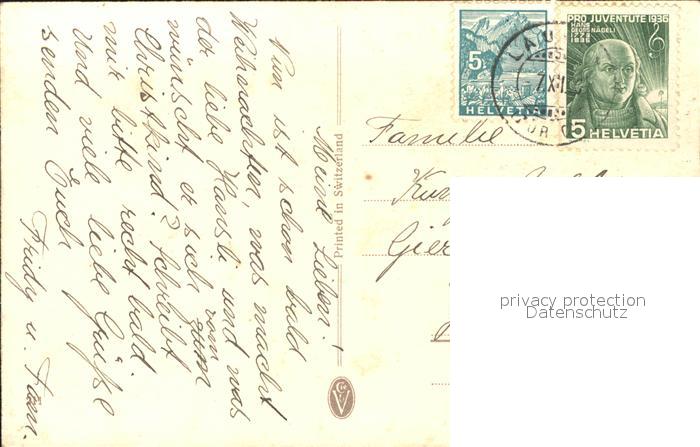 Meine Lieben!
Nun ist schon bald
Weihnachten, was macht
der liebe Hansli und was
wünscht er sich vom zum
Christkind? Schreibt
mir bitte recht bald.
Und viele liebe Grüsse
senden Euch
Fridy u. Fam.
Printed in Switzerland
5
HELVETIA
PRO JUVENTUTE 1936
HANS
GEORG NÄGELI
1773
1836
5 HELVETIA
Familie
privacy protection
Datenschutz